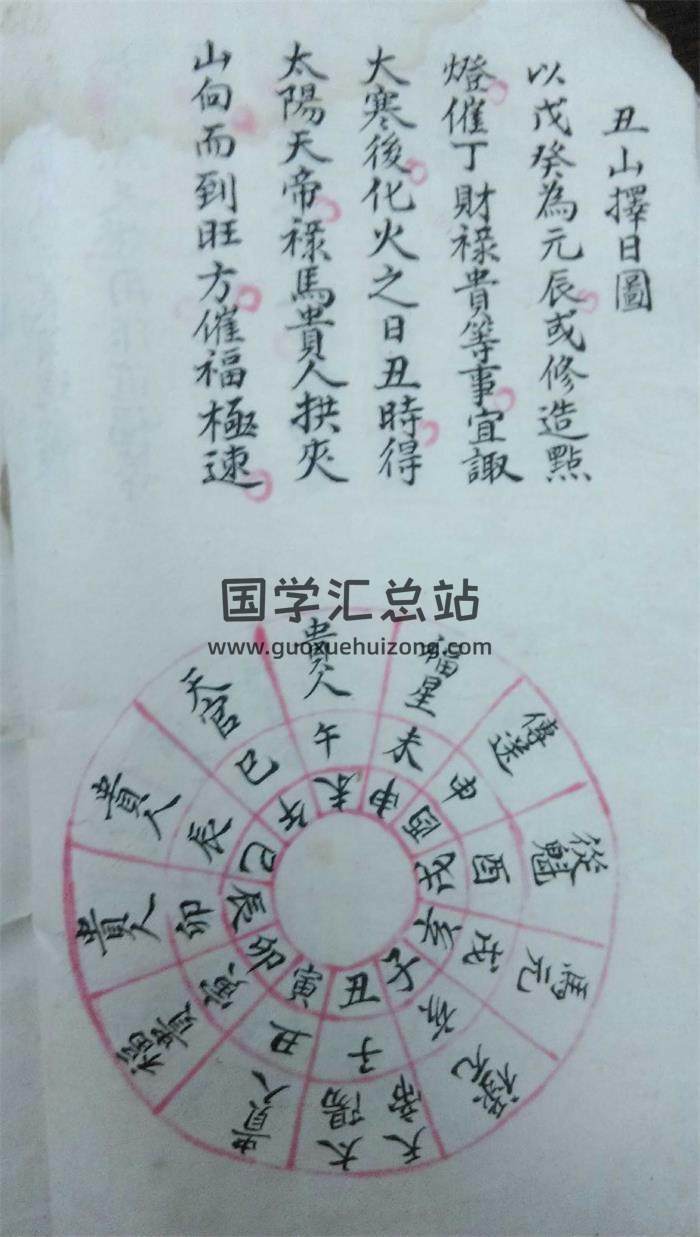 丑山擇日圖
以戊癸為元辰或修造點
燈催丁財祿貴等事宜諏
大寒後化火之日丑時得
太陽天帝祿馬貴人拱夾
山向而到旺方催福極速
国学汇总站
www.guoxuehuizong.com
貴人
福星
傳送
從魁
馬元
祿元
天帝
太陽
貴人
福貴
貴人
貴人
天官
午
未
申
酉
戌
亥
子
丑
寅
卯
辰
巳
未
申
酉
戌
亥
子
丑
寅
卯
辰
巳
午